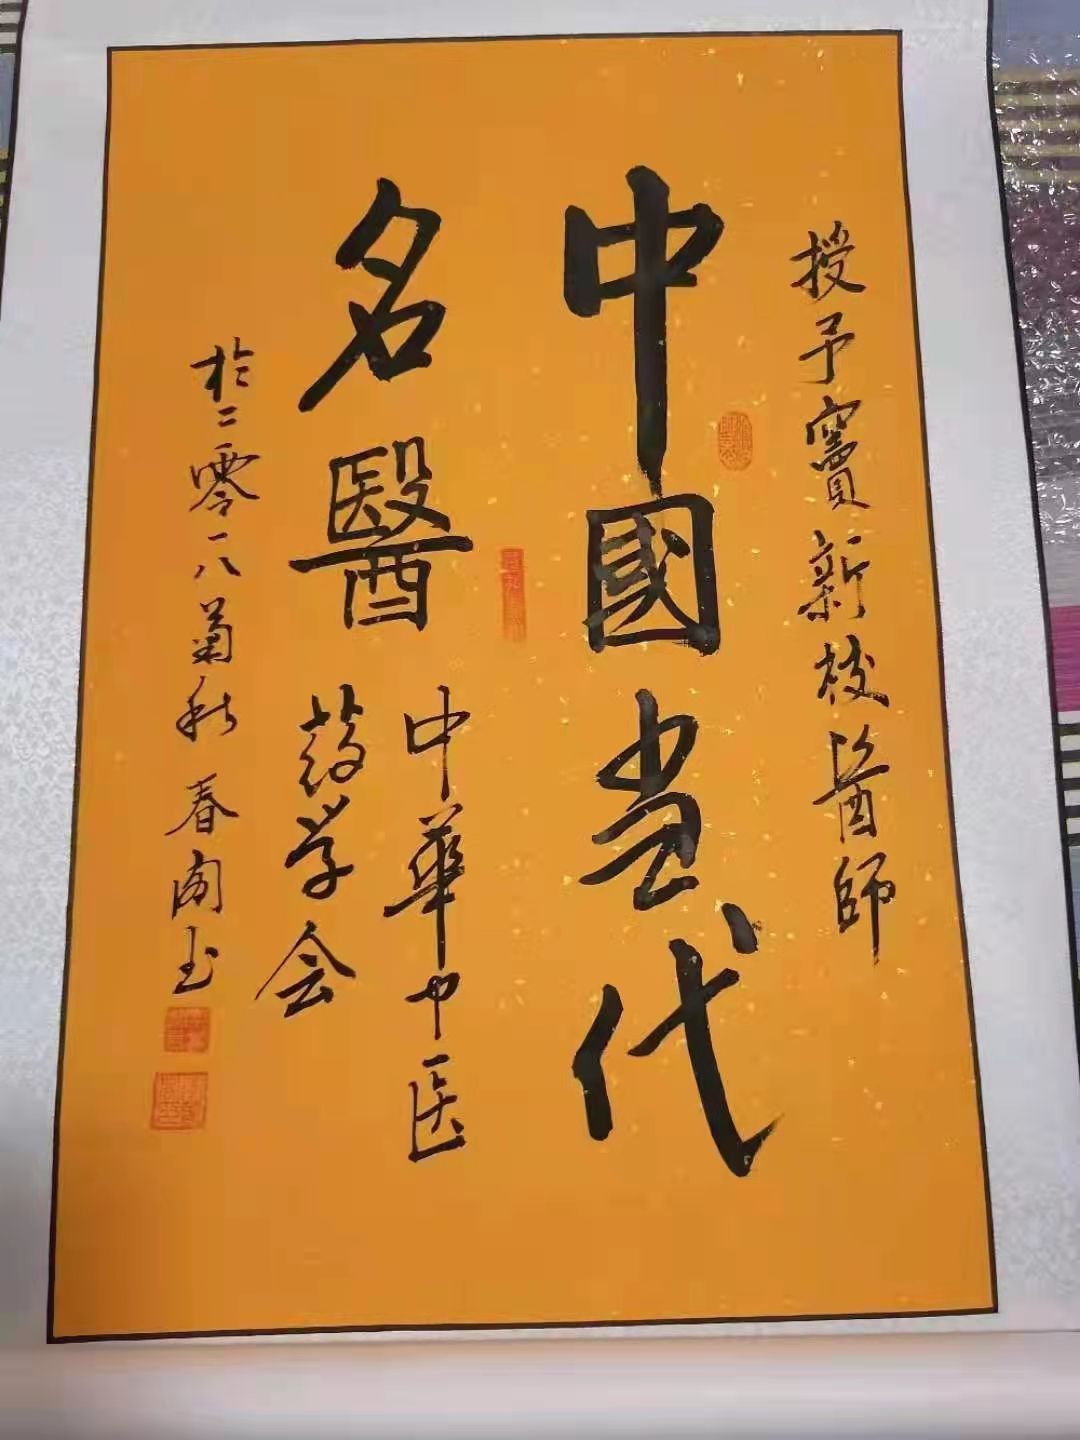 授予竇新枝醫師
中國当代
名醫
中華中医
药学会
於二零一八菊秋 春南书